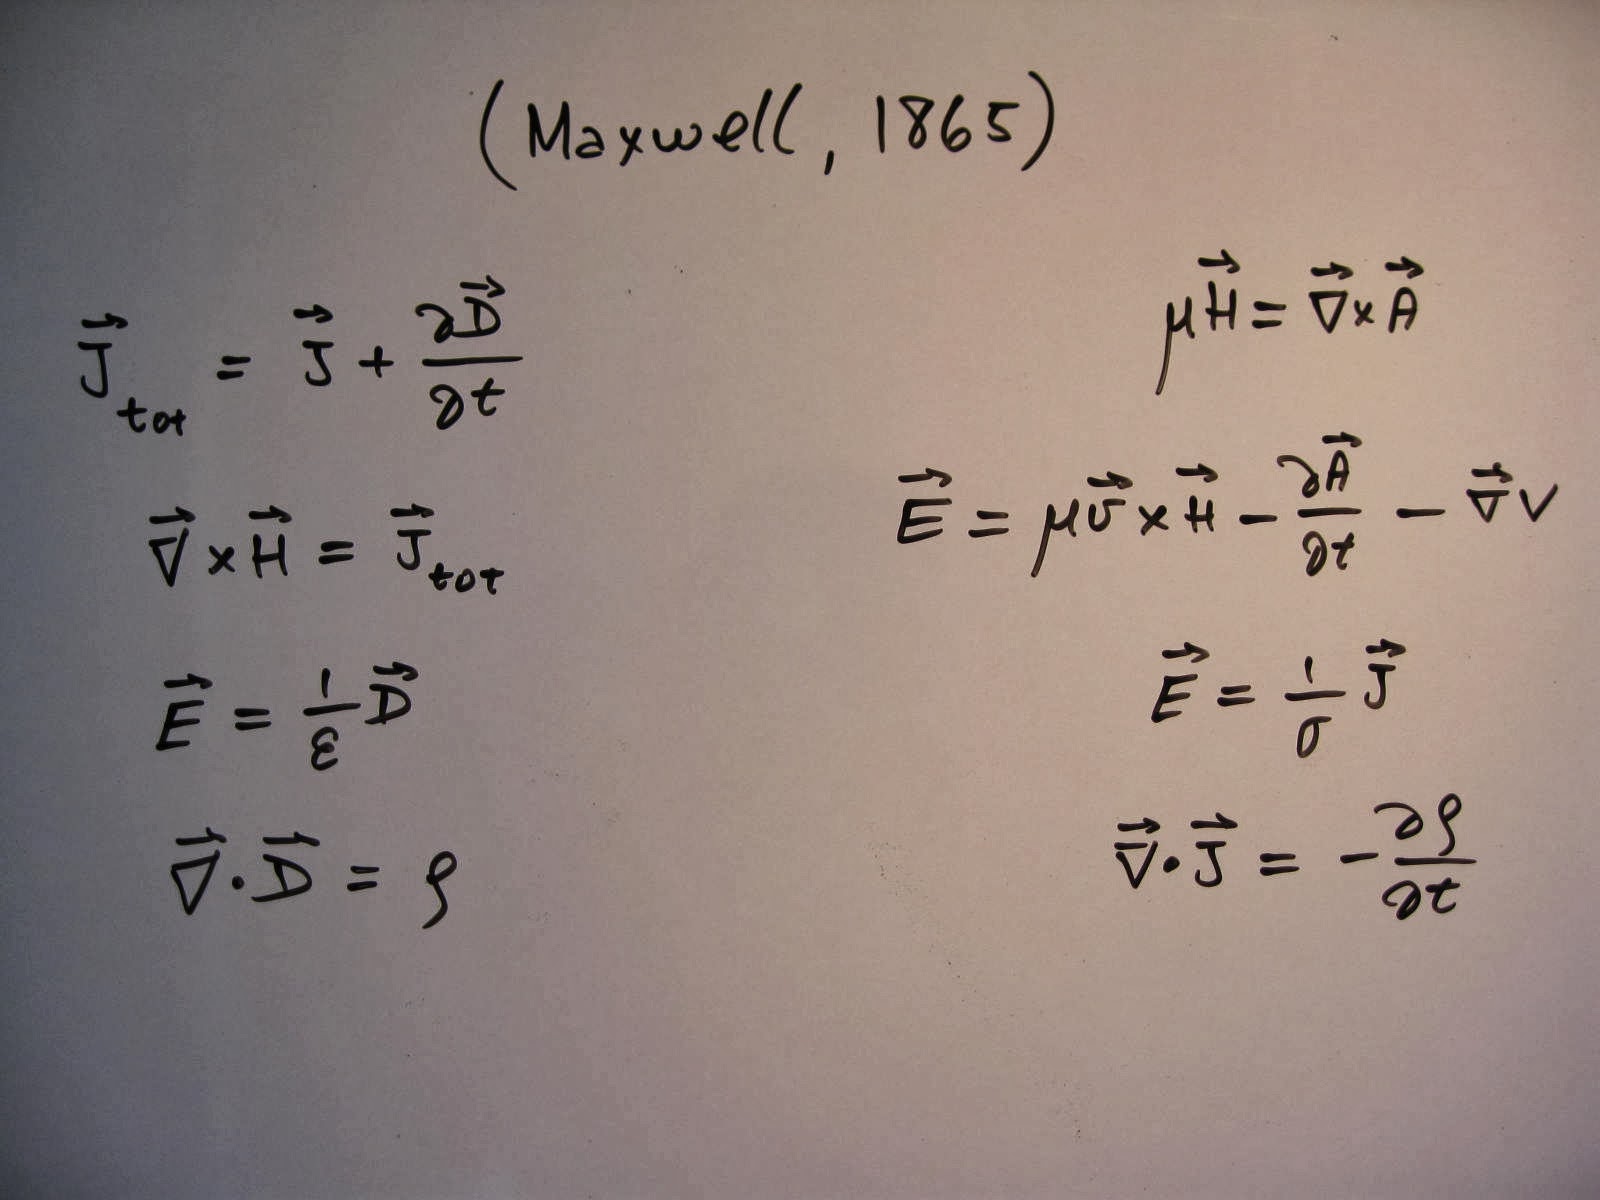 (Maxwell, 1865)
J⃗_tot = J⃗ + ∂D⃗/∂t
∇⃗ × H⃗ = J⃗_tot
E⃗ = 1/ε D⃗
∇⃗ · D⃗ = ρ
μH⃗ = ∇⃗ × A⃗
E⃗ = μv⃗ × H⃗ − ∂A⃗/∂t − ∇⃗V
E⃗ = 1/σ J⃗
∇⃗ · J⃗ = −∂ρ/∂t